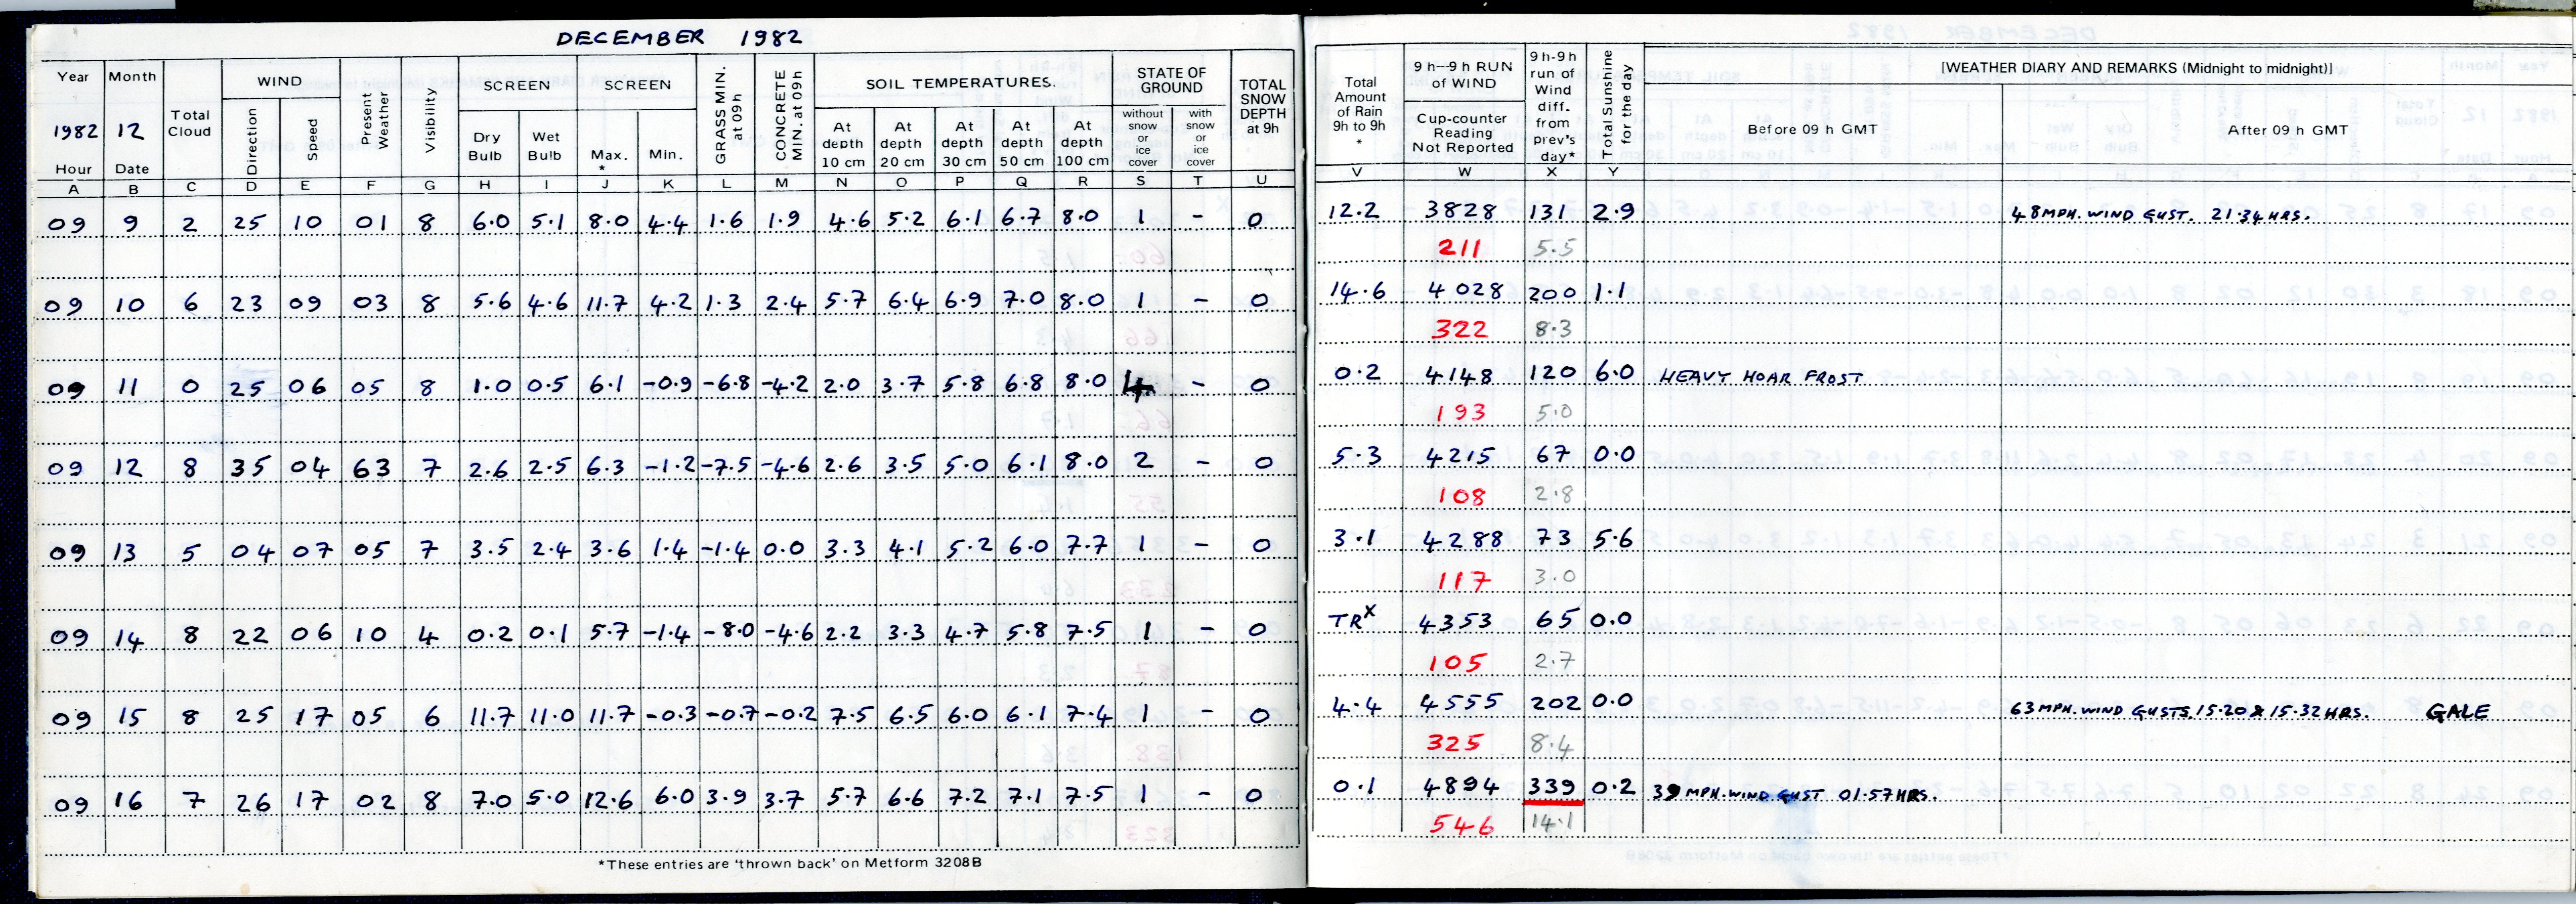 DECEMBER 1982
Year Month Total Cloud WIND Present Weather Visibility SCREEN SCREEN GRASS MIN. at 09h CONCRETE MIN. at 09h SOIL TEMPERATURES. STATE OF GROUND TOTAL SNOW DEPTH at 9h
1982 12 Direction Speed Dry Bulb Wet Bulb Max. * Min. At depth 10 cm At depth 20 cm At depth 30 cm At depth 50 cm At depth 100 cm without snow or ice cover with snow or ice cover
Hour Date
A B C D E F G H I J K L M N O P Q R S T U
09 9 2 25 10 01 8 6.0 5.1 8.0 4.4 1.6 1.9 4.6 5.2 6.1 6.7 8.0 1 - 0
09 10 6 23 09 03 8 5.6 4.6 11.7 4.2 1.3 2.4 5.7 6.4 6.9 7.0 8.0 1 - 0
09 11 0 25 06 05 8 1.0 0.5 6.1 -0.9 -6.8 -4.2 2.0 3.7 5.8 6.8 8.0 4 - 0
09 12 8 35 04 63 7 2.6 2.5 6.3 -1.2 -7.5 -4.6 2.6 3.5 5.0 6.1 8.0 2 - 0
09 13 5 04 07 05 7 3.5 2.4 3.6 1.4 -1.4 0.0 3.3 4.1 5.2 6.0 7.7 1 - 0
09 14 8 22 06 10 4 0.2 0.1 5.7 -1.4 -8.0 -4.6 2.2 3.3 4.7 5.8 7.5 1 - 0
09 15 8 25 17 05 6 11.7 11.0 11.7 -0.3 -0.7 -0.2 7.5 6.5 6.0 6.1 7.4 1 - 0
09 16 7 26 17 02 8 7.0 5.0 12.6 6.0 3.9 3.7 5.7 6.6 7.2 7.1 7.5 1 - 0
*These entries are 'thrown back' on Metform 3208B
Total Amount of Rain 9h to 9h * 9h—9h RUN of WIND 9h-9h run of Wind diff. from prev's day* Total Sunshine for the day [WEATHER DIARY AND REMARKS (Midnight to midnight)]
Cup-counter Reading Not Reported Before 09 h GMT After 09 h GMT
V W X Y
12.2 3828 131 2.9 48 MPH. WIND GUST. 21.34 HRS.
211 5.5
14.6 4028 200 1.1
322 8.3
0.2 4148 120 6.0 HEAVY HOAR FROST
193 5.0
5.3 4215 67 0.0
108 2.8
3.1 4288 73 5.6
117 3.0
TRx 4353 65 0.0
105 2.7
4.4 4555 202 0.0 63 MPH. WIND GUSTS. 15.20 & 15.32 HRS. GALE
325 8.4
0.1 4894 339 0.2 39 MPH. WIND GUST 01.57 HRS.
546 14.1